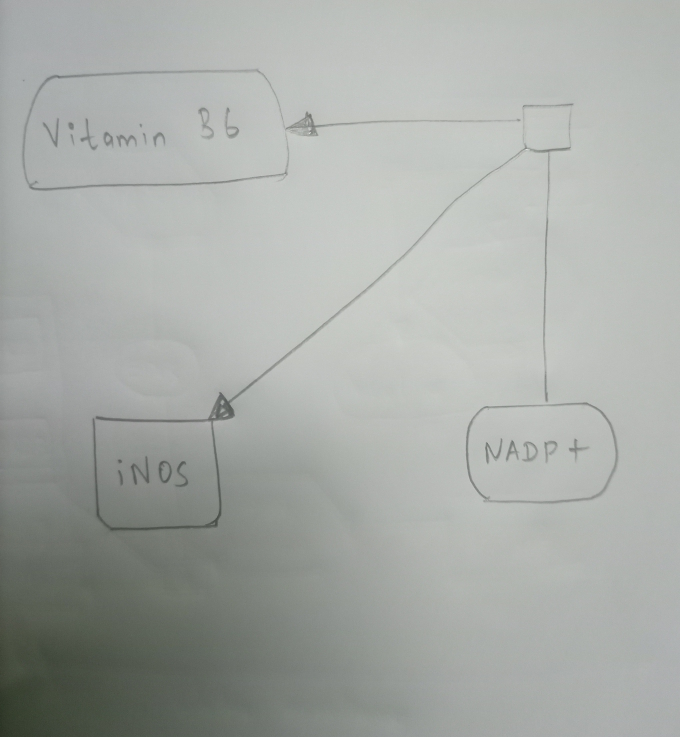 Vitamin B6
iNOS
NADP+